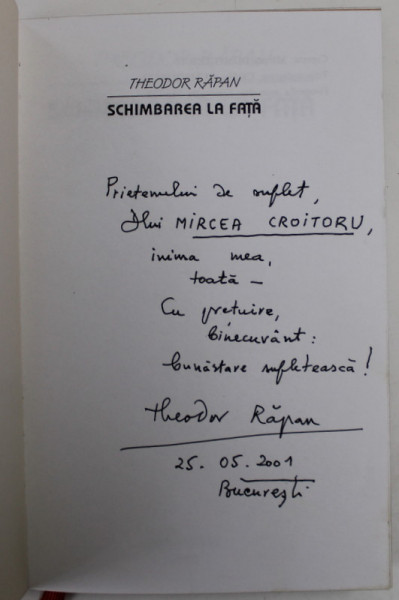 THEODOR RĂPAN
SCHIMBAREA LA FAȚĂ
Prietenului de suflet,
Dlui MIRCEA CROITORU,
inima mea,
toată –
Cu prețuire,
binecuvânt:
bunăstare sufletească!
Theodor Răpan
25. 05. 2001
București